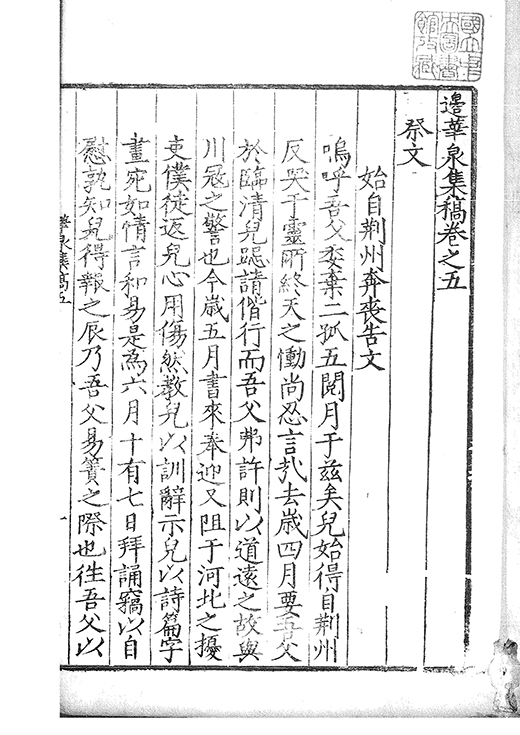 國立中
央圖書
館收藏
邊華泉集稿卷之五
祭文
始自荆州奔喪告文
嗚呼吾父委棄二孤五閱月于兹矣兒始得自荆州
反哭于靈所終天之慟尚忍言㢤去歳四月要吾父
於臨清兒跽請偕行而吾父弗許則以道遠之故與
川冦之警也今歳五月書來奉迎又阻于河北之擾
吏僕徒返兒心用傷然教兒以訓辭示兒以詩篇字
畫宛如情言和易是為六月十有七日拜誦竊以自
慰孰知兒得報之辰乃吾父易簀之際也徃吾父以
華泉集稿五
一